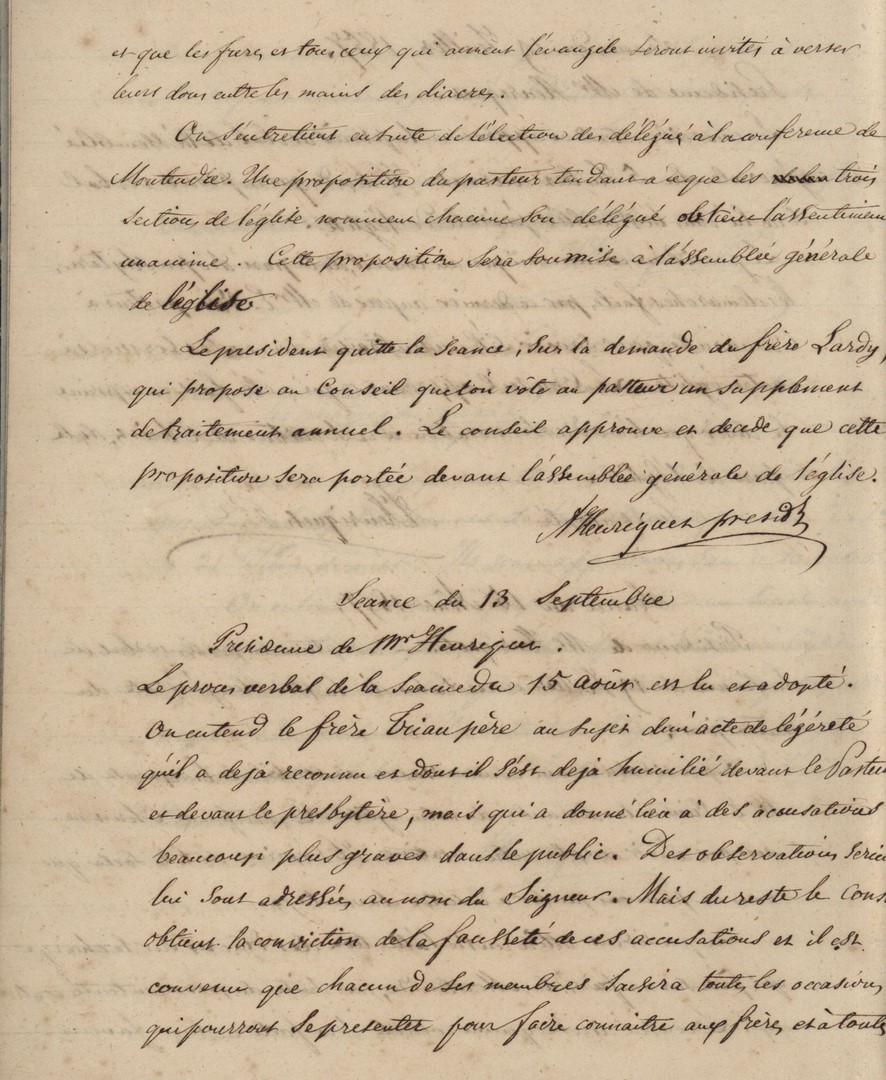 et que les frères et tous ceux qui aiment l'évangile seront invités à verser
leurs dons entre les mains des diacres.
On s'entretient ensuite de l'élection des délégué à la conference de
Montendre. Une proposition du pasteur tendant à ce que les trois
sections de l'église nomment chacune son délégué obtient l'assentiment
unanime. Cette proposition sera soumise à l'assemblée générale
de l'église
Le president quitte la séance, sur la demande du frère Lardy,
qui propose au Conseil que l'on vôte au pasteur un supplement
de traitement annuel. Le conseil approuve et decide que cette
proposition sera portée devant l'assemblée générale de l'église.
Henriquet presidt
Seance du 13 Septembre
Presidence de Mr Henriquet.
Le procès verbal de la séance du 15 août est lu et adopté.
On entend le frère père au sujet d'un acte de légéreté
qu'il a dejà reconnu et dont il s'est dejà humilié devant le Pasteu
et devant le presbytère, mais qui a donné lieu à des accusations
beaucoup plus graves dans le public. Des observations série
lui sont adressées au nom du Seigneur. Mais du reste le Cons
obtient la conviction de la fausseté de ces accusations et il est
convenu que chacun de ses membres saisira toutes les occasions
qui pourront se presenter pour faire connaitre aux frères et à toutes